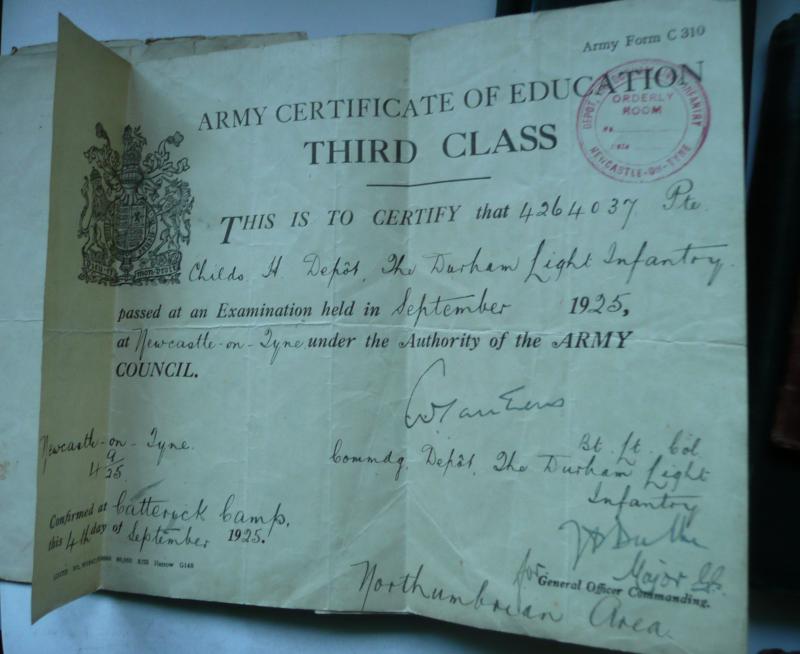 Army Form C 310
ARMY CERTIFICATE OF EDUCATION
THIRD CLASS
DEPOT, INFANTRY
ORDERLY
ROOM
No.
Date
NEWCASTLE-ON-TYNE
THIS IS TO CERTIFY that 4264037 Pte.
Childs H. Depôt, The Durham Light Infantry.
passed at an Examination held in September 1925,
at Newcastle-on-Tyne, under the Authority of the ARMY
COUNCIL.
Bt. Lt. Col.
Commdg. Depôt, The Durham Light
Infantry
Newcastle-on-Tyne.
4 9/25
Confirmed at Catterick Camp,
this 4th day of September 1925.
Major
for General Officer Commanding.
Northumbrian Area.
Harrow G148